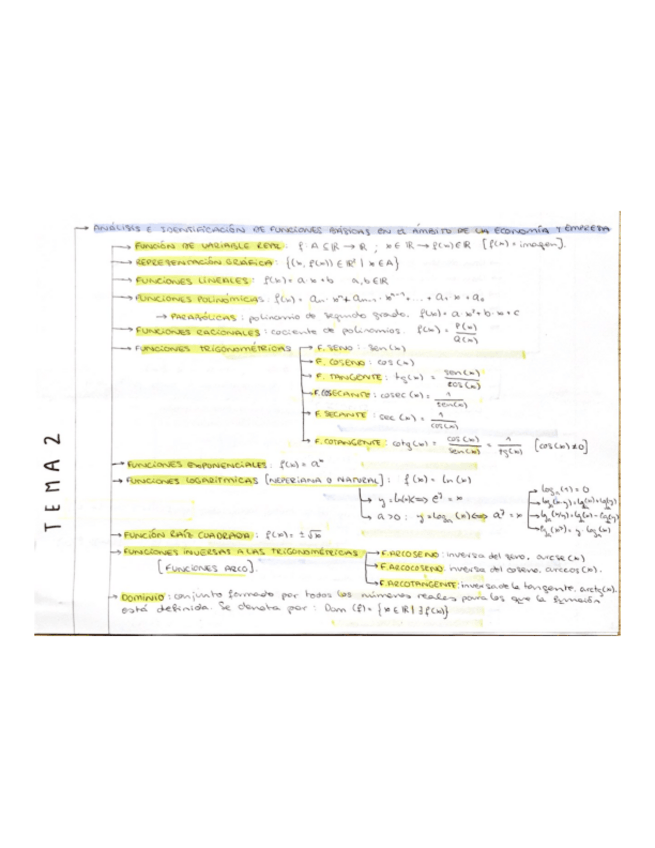 TEMA 2
→ ANÁLISIS E IDENTIFICACIÓN DE FUNCIONES BÁSICAS EN EL ÁMBITO DE LA ECONOMÍA Y EMPRESA
→ FUNCIÓN DE VARIABLE REAL: f: A ⊆ ℝ → ℝ ; x ∈ ℝ → f(x) ∈ ℝ [f(x) = imagen].
→ REPRESENTACIÓN GRÁFICA: {(x, f(x)) ∈ ℝ² | x ∈ A}
→ FUNCIONES LINEALES: f(x) = a·x + b a, b ∈ ℝ
→ FUNCIONES POLINÓMICAS: f(x) = aₙ·xⁿ + aₙ₋₁·xⁿ⁻¹ + ... + a₁·x + a₀
→ PARABÓLICAS: polinomio de segundo grado. f(x) = a·x² + b·x + c
→ FUNCIONES RACIONALES: cociente de polinomios. f(x) = P(x)/Q(x)
→ FUNCIONES TRIGONOMÉTRICAS → F. SENO: sen(x)
→ F. COSENO: cos(x)
→ F. TANGENTE: tg(x) = sen(x)/cos(x)
→ F. COSECANTE: cosec(x) = 1/sen(x)
→ F. SECANTE: sec(x) = 1/cos(x)
→ F. COTANGENTE: cotg(x) = cos(x)/sen(x) = 1/tg(x) [cos(x) ≠ 0]
→ FUNCIONES EXPONENCIALES: f(x) = aˣ
→ FUNCIONES LOGARÍTMICAS [NEPERIANA O NATURAL]: f(x) = ln(x)
→ y = ln(x) ⇔ eʸ = x
→ a > 0: y = logₐ(x) ⇔ aʸ = x
→ logₐ(1) = 0
→ logₐ(x·y) = logₐ(x) + logₐ(y)
→ logₐ(x/y) = logₐ(x) - logₐ(y)
→ logₐ(xʸ) = y·logₐ(x)
→ FUNCIÓN RAÍZ CUADRADA: f(x) = ±√x
→ FUNCIONES INVERSAS A LAS TRIGONOMÉTRICAS → F. ARCOSENO: inversa del seno. arcse(x)
[FUNCIONES ARCO]. → F. ARCOCOSENO: inversa del coseno. arccos(x).
→ F. ARCOTANGENTE: inversa de la tangente. arctg(x).
→ DOMINIO: conjunto formado por todos los números reales para los que la función
está definida. Se denota por: Dom (f) = {x ∈ ℝ | ∃ f(x)}